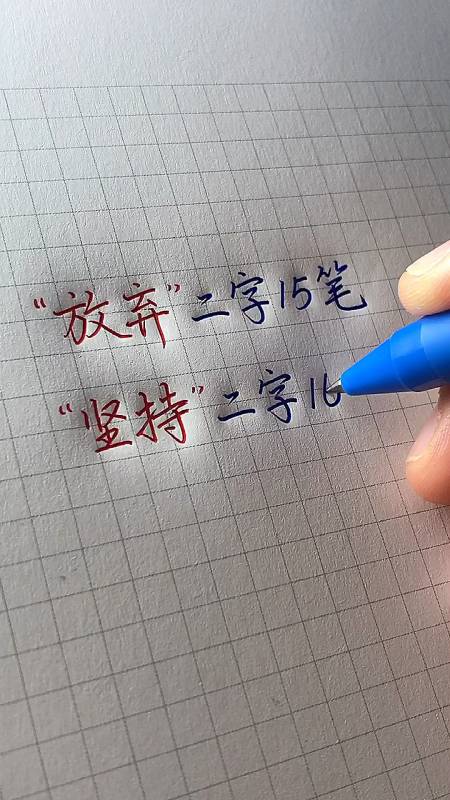 “放弃”二字15笔
“坚持”二字16